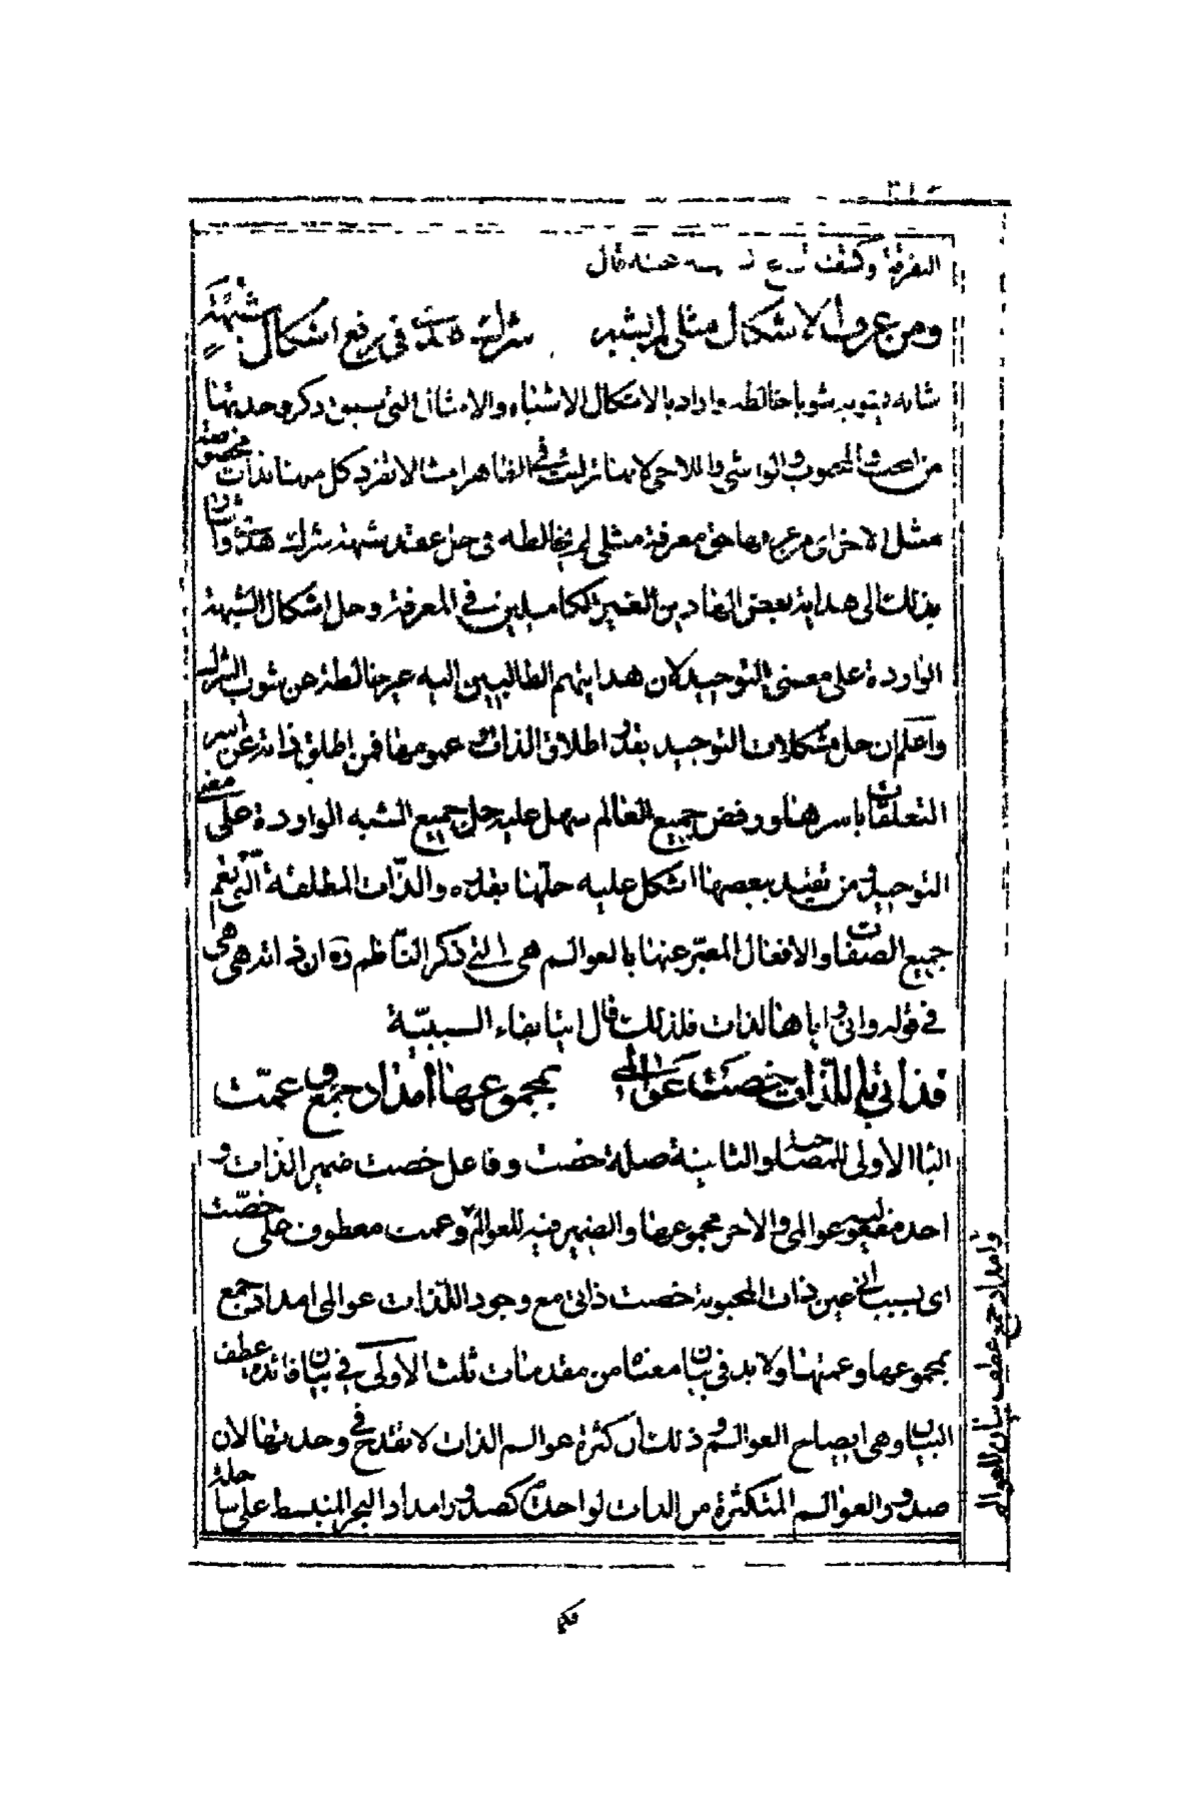 التفرقة وكشف عنه قال
ومن عرف الاشكال مثلي لم يشبه شرك هدى في رفع اشكال شبهة
شابه يشوبه شوبا خالطه واراد بالاشكال الاشباه والامثال التي سبق ذكر وحدتها
من المحب والمحبوب والواشي واللاحي لانها تراءت في الظاهر امثالا تفرد كل منها بذات مخصوصة
مثل الاخرى من عرفها حق معرفة مثلي لم يخالطه في حل عقد شبهة شرك هدى واشار
بذلك الى هداية بعض الهادين الغير الكاملين في المعرفة وحل اشكال الشبهة
الواردة على معنى التوحيد لان هدايتهم الطالبين اليه غير خالطة من شوب الشرك
واعلم ان حل مشكلات التوحيد بقدر اطلاق الذات وعمومها فمن اطلق ذاته عن اسر
التعلقات باسرها ورفض جميع العالم سهل عليه حل جميع الشبه الواردة على معنى
التوحيد ومن تقيد ببعضها اشكل عليه حلها بقدره والذات المطلقة التي تعم
جميع الصفات والافعال المعبر عنها بالعوالم هي التي ذكر الناظم ره ان ذاته هي هي
في قوله واني واياها لذات فلذلك قال ايتا بفاء السببية
فذاتي باللذات خصت عوالمي بمجموعها امداد جمع وعمت
البا الاولى للمصاحبة والثانية صلة خصت وفاعل خصت ضمير الذات و
احد مفعوليه عوالمي والاخر مجموعها والضمير فيه للعوالم وعمت معطوف على خصت
اي بسبب اني عين ذات المحبوبة خصت ذاتي مع وجود اللذات عوالمي امداد جمع
بمجموعها وعمتها ولا بد في بيان معناه من مقدمات ثلث الاولى في بيان فائدة عطف
البيان وهي ايضاح العوالم وذلك ان كثرة عوالم الذات لا تقدح في وحدتها لان
صدور العوالم المتكثرة من الذات لواحدة كصدور امداد البحر المنبسط على ساحله
وامداد جمع عطف بيان للعوالم